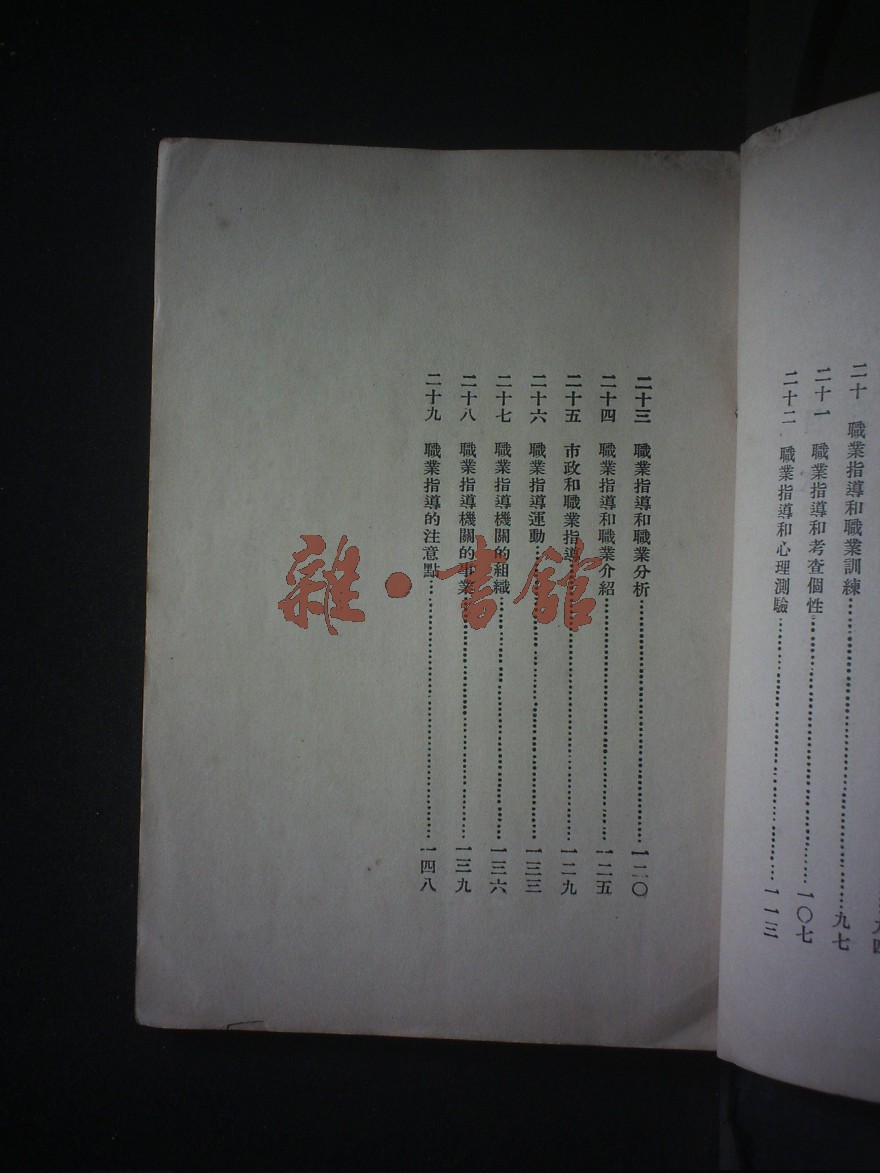 二十 職業指導和職業訓練……九七
二十一 職業指導和考查個性……一〇七
二十二 職業指導和心理測驗……一一三
二十三 職業指導和職業分析……一二〇
二十四 職業指導和職業介紹……一二五
二十五 市政和職業指導……一二九
二十六 職業指導運動……一三三
二十七 職業指導機關的組織……一三六
二十八 職業指導機關的事業……一三九
二十九 職業指導的注意點……一四八
雜·書館